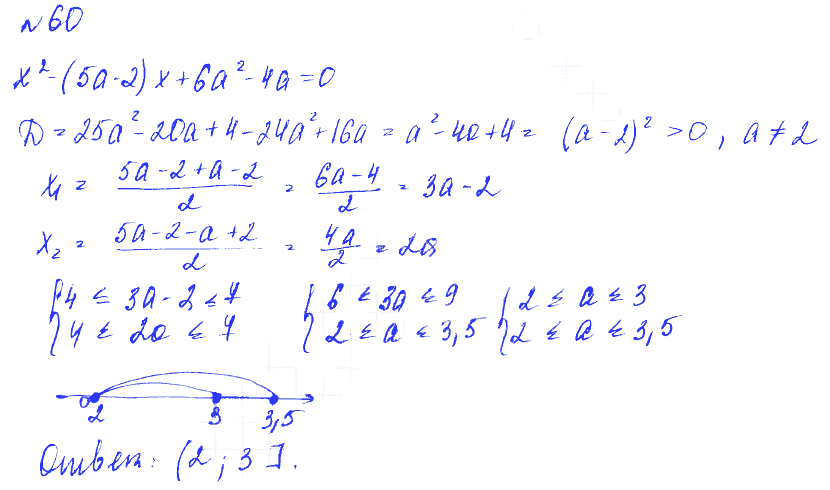 №60
x² - (5a - 2)x + 6a² - 4a = 0
D = 25a² - 20a + 4 - 24a² + 16a = a² - 4a + 4 = (a - 2)² > 0, a ≠ 2
x₁ = (5a - 2 + a - 2)/2 = (6a - 4)/2 = 3a - 2
x₂ = (5a - 2 - a + 2)/2 = 4a/2 = 2a
{ 4 ≤ 3a - 2 ≤ 7 { 6 ≤ 3a ≤ 9 { 2 ≤ a ≤ 3
{ 4 ≤ 2a ≤ 7 { 2 ≤ a ≤ 3,5 { 2 ≤ a ≤ 3,5
2 3 3,5
Ответ: (2; 3].